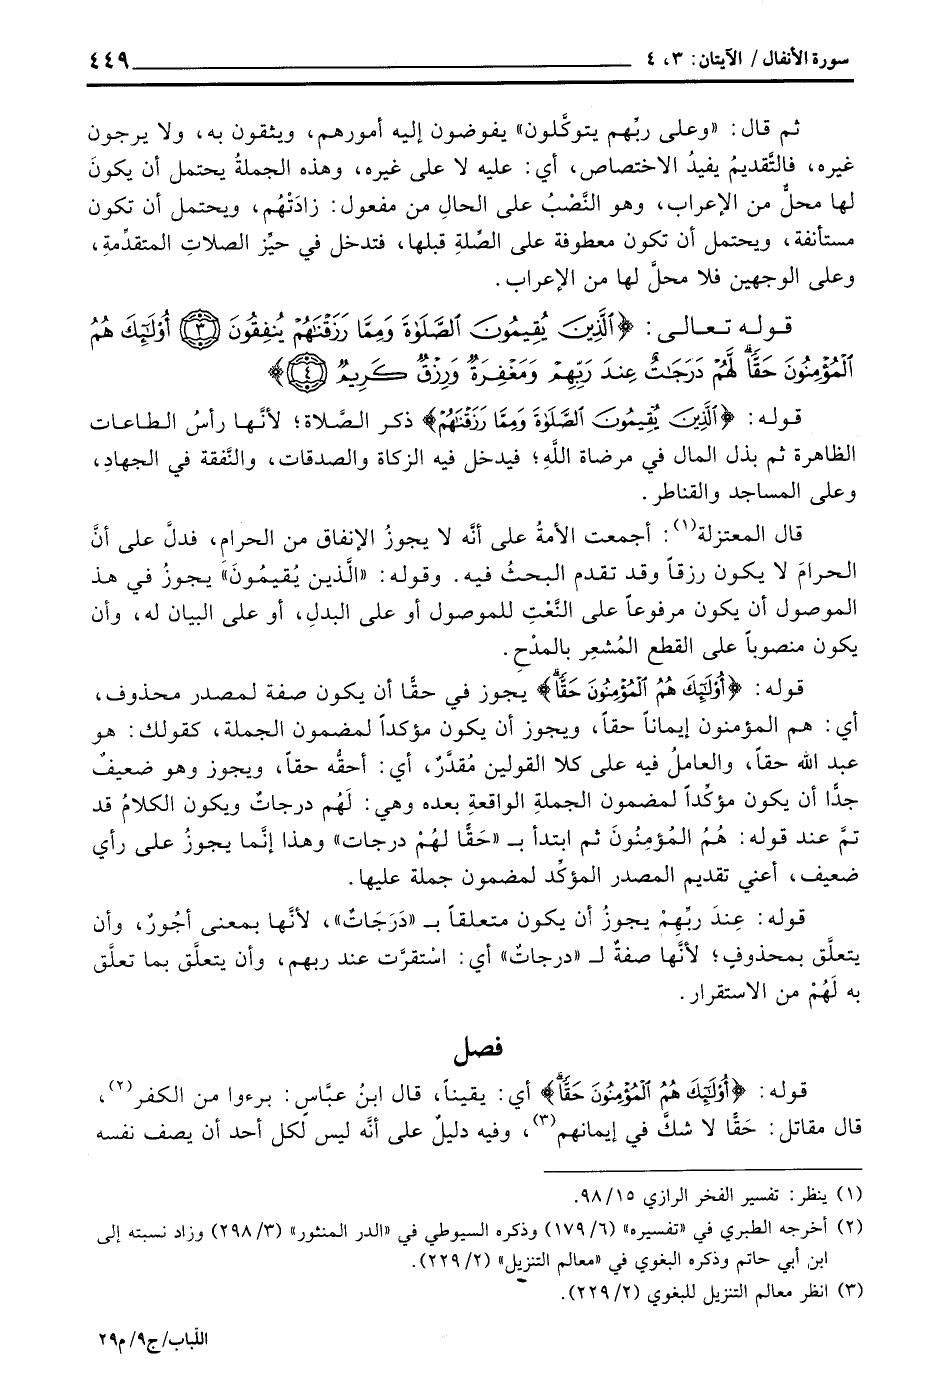 سورة الأنفال / الآيتان: ٣، ٤ ٤٤٩
ثم قال: «وعلى ربِّهم يتوكَّلون» يفوضون إليه أمورهم، ويثقون به، ولا يرجون
غيره، فالتَّقديمُ يفيدُ الاختصاص، أي: عليه لا على غيره، وهذه الجملةُ يحتمل أن يكونَ
لها محلٌّ من الإعراب، وهو النَّصْبُ على الحالِ من مفعول: زادَتْهُم، ويحتمل أن تكون
مستأنفة، ويحتمل أن تكون معطوفة على الصِّلةِ قبلها، فتدخل في حيِّز الصلاتِ المتقدِّمةِ،
وعلى الوجهين فلا محلَّ لها من الإعراب.
قوله تعالى: ﴿ٱلَّذِينَ يُقِيمُونَ ٱلصَّلَوٰةَ وَمِمَّا رَزَقْنَٰهُمْ يُنفِقُونَ ٣ أُوْلَٰٓئِكَ هُمُ
ٱلْمُؤْمِنُونَ حَقًّاۚ لَّهُمْ دَرَجَٰتٌ عِندَ رَبِّهِمْ وَمَغْفِرَةٌ وَرِزْقٌ كَرِيمٌ ٤﴾
قوله: ﴿ٱلَّذِينَ يُقِيمُونَ ٱلصَّلَوٰةَ وَمِمَّا رَزَقْنَٰهُمْ﴾ ذكر الصَّلاة؛ لأنَّها رأسُ الطاعات
الظاهرة ثم بذل المال في مرضاة اللَّهِ؛ فيدخل فيه الزكاة والصدقات، والنَّفقة في الجهادِ،
وعلى المساجد والقناطر.
قال المعتزلة(١): أجمعت الأمةُ على أنَّه لا يجوزُ الإنفاق من الحرام، فدلَّ على أنَّ
الحرامَ لا يكون رزقاً وقد تقدم البحثُ فيه. وقوله: «الَّذين يُقيمُونَ» يجوزُ في هذ
الموصول أن يكون مرفوعاً على النَّعْتِ للموصول أو على البدلِ، أو على البيان له، وأن
يكون منصوباً على القطع المُشعِر بالمدْحِ.
قوله: ﴿أُوْلَٰٓئِكَ هُمُ ٱلْمُؤْمِنُونَ حَقًّاۚ﴾ يجوز في حقًّا أن يكون صفة لمصدر محذوف،
أي: هم المؤمنون إيماناً حقاً، ويجوز أن يكون مؤكداً لمضمون الجملة، كقولك: هو
عبد الله حقاً، والعاملُ فيه على كلا القولين مُقدَّرٌ، أي: أحقُّه حقاً، ويجوز وهو ضعيفٌ
جدًّا أن يكون مؤكِّداً لمضمون الجملةِ الواقعةِ بعده وهي: لَهُم درجاتٌ ويكون الكلامُ قد
تمَّ عند قوله: هُمُ المُؤمِنُونَ ثم ابتدأ بـ «حَقًّا لهُمْ درجات» وهذا إنَّما يجوزُ على رأي
ضعيف، أعني تقديم المصدر المؤكِّد لمضمون جملة عليها.
قوله: عِندَ ربِّهِمْ يجوزُ أن يكون متعلقاً بـ «دَرَجَاتٌ»، لأنَّها بمعنى أجُورٌ، وأن
يتعلَّق بمحذوفٍ؛ لأنَّها صفةٌ لـ «درجاتٌ» أي: اسْتقرَّت عند ربهم، وأن يتعلَّق بما تعلَّق
به لَهُمْ من الاستقرار.
فصل
قوله: ﴿أُوْلَٰٓئِكَ هُمُ ٱلْمُؤْمِنُونَ حَقًّاۚ﴾ أي: يقيناً، قال ابنُ عبَّاسٍ: برءوا من الكفر(٢)،
قال مقاتل: حَقًّا لا شكَّ في إيمانهم(٣)، وفيه دليلٌ على أنَّه ليس لكل أحد أن يصف نفسه
(١) ينظر: تفسير الفخر الرازي ١٥/ ٩٨.
(٢) أخرجه الطبري في «تفسيره» (٦/ ١٧٩) وذكره السيوطي في «الدر المنثور» (٣/ ٢٩٨) وزاد نسبته إلى
ابن أبي حاتم وذكره البغوي في «معالم التنزيل» (٢/ ٢٢٩).
(٣) انظر معالم التنزيل للبغوي (٢/ ٢٢٩).
اللباب/ ج٩/ م٢٩